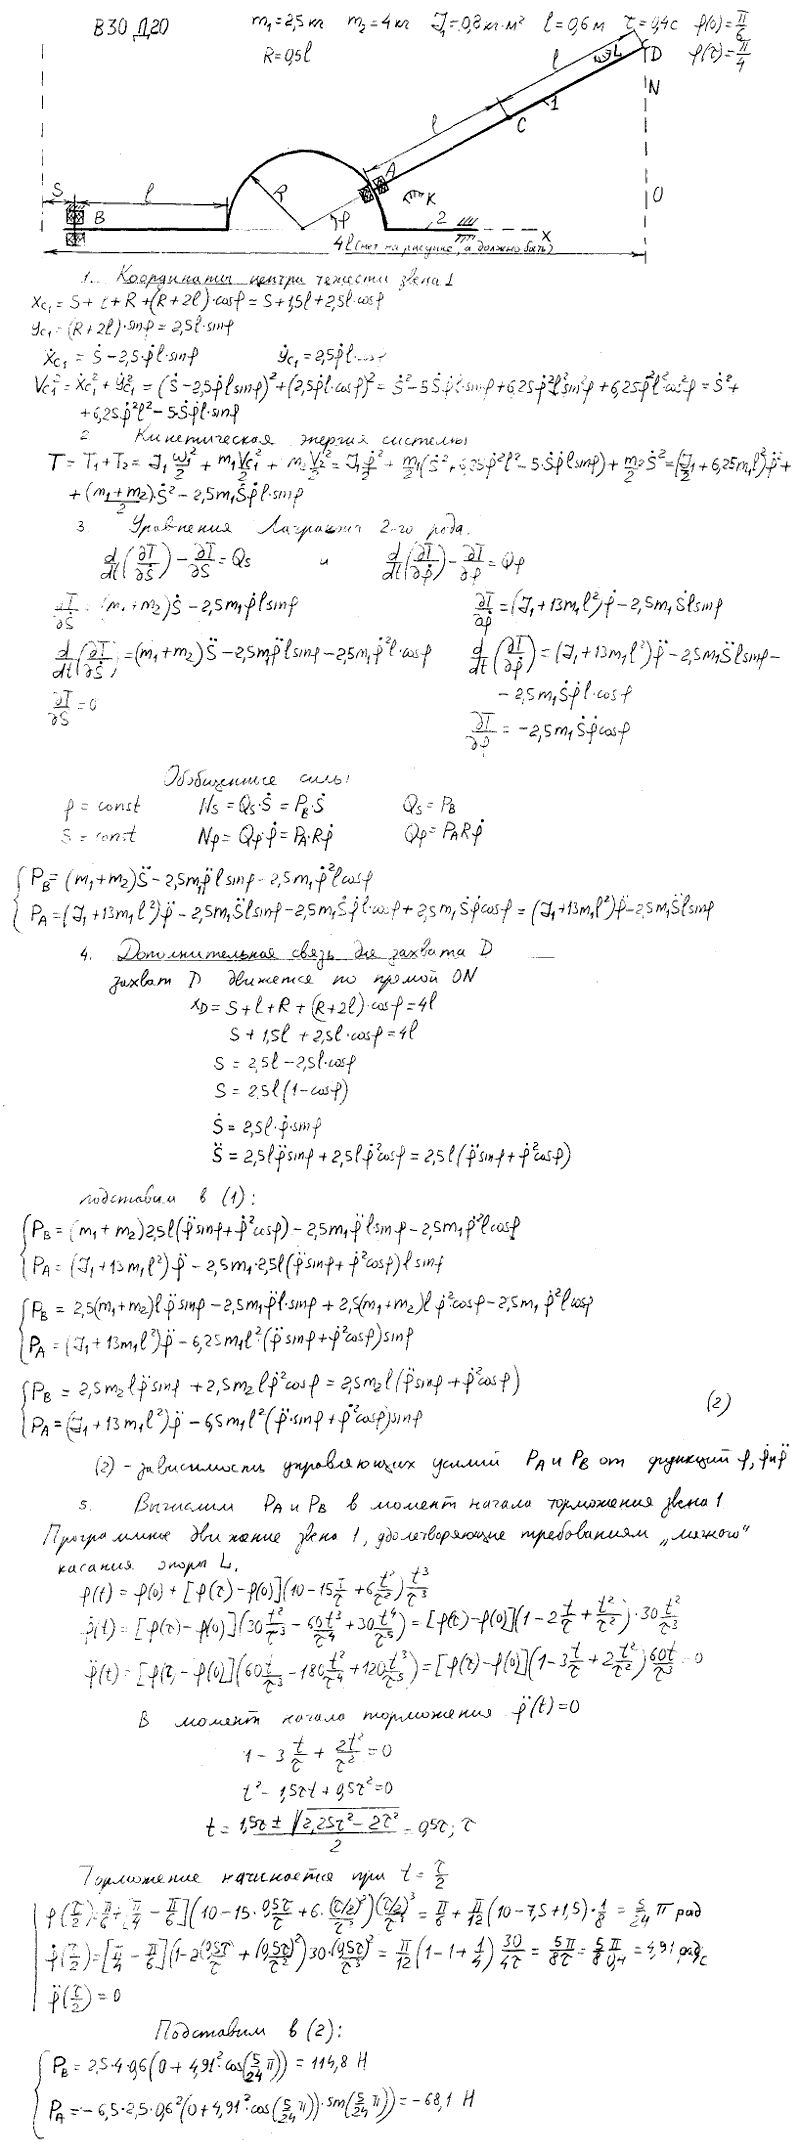 В30 Д20 m₁=2,5кг m₂=4кг J₁=0,8кг·м² l=0,6м τ=0,4с φ(0)=π/6
R=0,5l φ(τ)=π/4
l L D
N
l C 1
S l R A K O
B φ 2 x
4l (нет на рисунке, а должно быть)
1. Координаты центра тяжести звена 1
x_C₁ = S+l+R+(R+2l)·cosφ = S+1,5l+2,5l·cosφ
y_C₁ = (R+2l)·sinφ = 2,5l·sinφ
ẋ_C₁ = Ṡ-2,5φ̇l·sinφ ẏ_C₁ = 2,5φ̇l·cosφ
V_C₁² = ẋ_C₁²+ẏ_C₁² = (Ṡ-2,5φ̇l sinφ)²+(2,5φ̇l·cosφ)² = Ṡ²-5Ṡφ̇l·sinφ+6,25φ̇²l²sin²φ+6,25φ̇²l²cos²φ = Ṡ²+
+6,25φ̇²l²-5Ṡφ̇l·sinφ
2. Кинетическая энергия системы
T = T₁+T₂ = J₁ω₁²/2 + m₁V_C₁²/2 + m₂V₂²/2 = J₁φ̇²/2 + m₁/2(Ṡ²+6,25φ̇²l²-5·Ṡφ̇l sinφ)+m₂/2 Ṡ² = (J₁/2+6,25m₁l²)φ̇²+
+(m₁+m₂)/2·Ṡ² - 2,5m₁Ṡφ̇l·sinφ
3. Уравнения Лагранжа 2-го рода.
d/dt(∂T/∂Ṡ) - ∂T/∂S = Q_S и d/dt(∂T/∂φ̇) - ∂T/∂φ = Qφ
∂T/∂Ṡ = (m₁+m₂)Ṡ - 2,5m₁φ̇l sinφ ∂T/∂φ̇ = (J₁+13m₁l²)φ̇ - 2,5m₁Ṡl sinφ
d/dt(∂T/∂Ṡ) = (m₁+m₂)S̈ - 2,5m₁φ̈l sinφ - 2,5m₁φ̇²l·cosφ d/dt(∂T/∂φ̇) = (J₁+13m₁l²)φ̈ - 2,5m₁S̈l sinφ -
- 2,5m₁Ṡφ̇l·cosφ
∂T/∂S = 0 ∂T/∂φ = -2,5m₁Ṡφ̇cosφ
Обобщенные силы:
φ = const N_S = Q_S·Ṡ = P_B·Ṡ Q_S = P_B
S = const Nφ = Qφ·φ̇ = P_A·Rφ̇ Qφ = P_A Rφ̇
P_B = (m₁+m₂)S̈ - 2,5m₁φ̈l sinφ - 2,5m₁φ̇²l cosφ
P_A = (J₁+13m₁l²)φ̈ - 2,5m₁S̈l sinφ - 2,5m₁Ṡφ̇l·cosφ + 2,5m₁Ṡφ̇cosφ = (J₁+13m₁l²)φ̈ - 2,5m₁S̈l sinφ
4. Дополнительная связь для захвата D
захват D движется по прямой ON
x_D = S+l+R+(R+2l)·cosφ = 4l
S+1,5l+2,5l·cosφ = 4l
S = 2,5l-2,5l·cosφ
S = 2,5l(1-cosφ)
Ṡ = 2,5l·φ̇·sinφ
S̈ = 2,5lφ̈sinφ + 2,5lφ̇²cosφ = 2,5l(φ̈sinφ+φ̇²cosφ)
подставим в (1):
P_B = (m₁+m₂)2,5l(φ̈sinφ+φ̇²cosφ) - 2,5m₁φ̈l sinφ - 2,5m₁φ̇²l cosφ
P_A = (J₁+13m₁l²)φ̈ - 2,5m₁·2,5l(φ̈sinφ+φ̇²cosφ)l sinφ
P_B = 2,5(m₁+m₂)lφ̈sinφ - 2,5m₁φ̈l·sinφ + 2,5(m₁+m₂)lφ̇²cosφ - 2,5m₁φ̇²l cosφ
P_A = (J₁+13m₁l²)φ̈ - 6,25m₁l²·(φ̈sinφ+φ̇²cosφ)sinφ
P_B = 2,5m₂lφ̈sinφ + 2,5m₂lφ̇²cosφ = 2,5m₂l(φ̈sinφ+φ̇²cosφ)
(2)
P_A = (J₁+13m₁l²)φ̈ - 6,5m₁l²(φ̈·sinφ+φ̇²cosφ)sinφ
(2) - зависимости управляющих усилий P_A и P_B от функций φ, φ̇ и φ̈
5. Вычислим P_A и P_B в момент начала торможения звена 1
Программное движение звена 1, удовлетворяющие требованиям „мягкого"
касания опоры L.
φ(t) = φ(0)+[φ(τ)-φ(0)](10-15t/τ+6t²/τ²)t³/τ³
φ̇(t) = [φ(τ)-φ(0)](30t²/τ³-60t³/τ⁴+30t⁴/τ⁵) = [φ(τ)-φ(0)](1-2t/τ+t²/τ²)·30t²/τ³
φ̈(t) = [φ(τ)-φ(0)](60t/τ³-180t²/τ⁴+120t³/τ⁵) = [φ(τ)-φ(0)](1-3t/τ+2t²/τ²)60t/τ³ = 0
В момент начала торможения φ̈(t)=0
1-3t/τ+2t²/τ²=0
t²-1,5τt+0,5τ²=0
t = (1,5τ±√(2,25τ²-2τ²))/2 = 0,5τ; τ
Торможение начинается при t=τ/2
φ(τ/2)=π/6+[π/4-π/6](10-15·0,5τ/τ+6·(τ/2)²/τ²)(τ/2)³/τ³ = π/6+π/12(10-7,5+1,5)·1/8 = 5/24 π рад
φ̇(τ/2)=[π/4-π/6](1-2(0,5τ)/τ+(0,5τ)²/τ²)30·(0,5τ)²/τ³ = π/12(1-1+1/4)30/4τ = 5π/8τ = 5/8 π/0,4 = 4,91 рад/с
φ̈(τ/2)=0
Подставим в (2):
P_B = 2,5·4·0,6(0+4,91²·cos(5/24 π)) = 114,8 Н
P_A = -6,5·2,5·0,6²(0+4,91²·cos(5/24 π))·sin(5/24 π)) = -68,1 Н